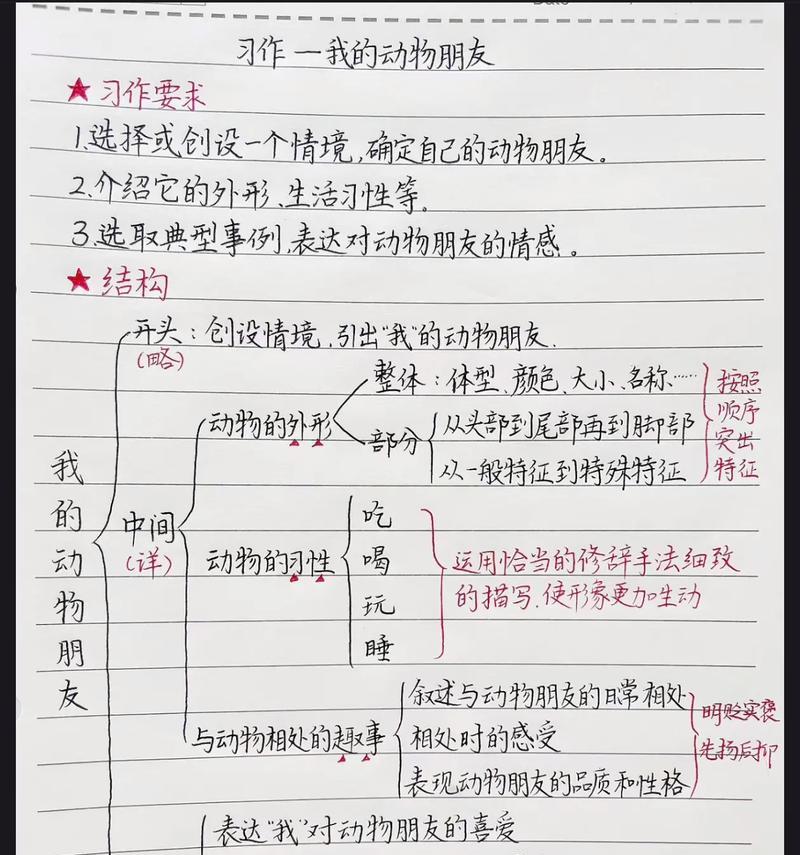 习作一我的动物朋友
★习作要求
1.选择或创设一个情境,确定自己的动物朋友。
2.介绍它的外形、生活习性等。
3.选取典型事例,表达对动物朋友的情感。
★结构
我的动物朋友
开头:创设情境,引出“我”的动物朋友.
(略)
中间
(详)
动物的外形
整体:体型、颜色、大小、名称……
部分
从头部到尾部再到脚部
从一般特征到特殊特征
按照
顺序
突出
特征
动物的习性
吃
喝
玩
睡
运用恰当的修辞手法细致
的描写,使形象更加生动
与动物相处的趣事
叙述与动物朋友的日常相处
相处时的感受
表现动物朋友的品质和性格
明贬实褒
先扬后抑
表达“我”对动物朋友的喜爱